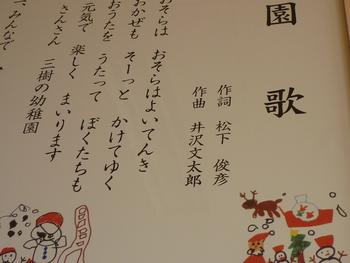 園歌
作詞 松下 俊彦
作曲 井沢文太郎
おそらは おそらはよいてんき
おかぜも そーっと かけてゆく
おうたを うたって ぼくたちも
元気で 楽しく まいります
さんさん 三樹の幼稚園
みんなで